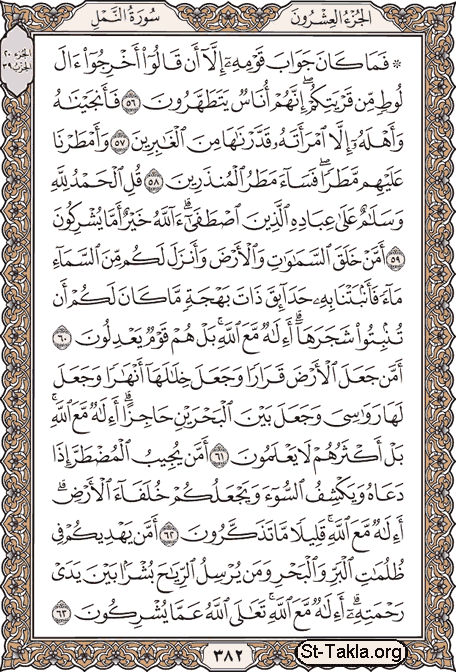 الجزء العشرون
سورة النمل
الجزء ٢٠
الحزب ٣٩
۞ فَمَا كَانَ جَوَابَ قَوْمِهِۦٓ إِلَّآ أَن قَالُوٓا۟ أَخْرِجُوٓا۟ ءَالَ
لُوطٍ مِّن قَرْيَتِكُمْ ۖ إِنَّهُمْ أُنَاسٌ يَتَطَهَّرُونَ ٥٦ فَأَنجَيْنَٰهُ
وَأَهْلَهُۥٓ إِلَّا ٱمْرَأَتَهُۥ قَدَّرْنَٰهَا مِنَ ٱلْغَٰبِرِينَ ٥٧ وَأَمْطَرْنَا
عَلَيْهِم مَّطَرًا ۖ فَسَآءَ مَطَرُ ٱلْمُنذَرِينَ ٥٨ قُلِ ٱلْحَمْدُ لِلَّهِ
وَسَلَٰمٌ عَلَىٰ عِبَادِهِ ٱلَّذِينَ ٱصْطَفَىٰٓ ۗ ءَآللَّهُ خَيْرٌ أَمَّا يُشْرِكُونَ
٥٩ أَمَّنْ خَلَقَ ٱلسَّمَٰوَٰتِ وَٱلْأَرْضَ وَأَنزَلَ لَكُم مِّنَ ٱلسَّمَآءِ
مَآءً فَأَنۢبَتْنَا بِهِۦ حَدَآئِقَ ذَاتَ بَهْجَةٍ مَّا كَانَ لَكُمْ أَن
تُنۢبِتُوا۟ شَجَرَهَآ ۗ أَءِلَٰهٌ مَّعَ ٱللَّهِ ۚ بَلْ هُمْ قَوْمٌ يَعْدِلُونَ ٦٠
أَمَّن جَعَلَ ٱلْأَرْضَ قَرَارًا وَجَعَلَ خِلَٰلَهَآ أَنْهَٰرًا وَجَعَلَ
لَهَا رَوَٰسِىَ وَجَعَلَ بَيْنَ ٱلْبَحْرَيْنِ حَاجِزًا ۗ أَءِلَٰهٌ مَّعَ ٱللَّهِ ۚ
بَلْ أَكْثَرُهُمْ لَا يَعْلَمُونَ ٦١ أَمَّن يُجِيبُ ٱلْمُضْطَرَّ إِذَا
دَعَاهُ وَيَكْشِفُ ٱلسُّوٓءَ وَيَجْعَلُكُمْ خُلَفَآءَ ٱلْأَرْضِ ۗ
أَءِلَٰهٌ مَّعَ ٱللَّهِ ۚ قَلِيلًا مَّا تَذَكَّرُونَ ٦٢ أَمَّن يَهْدِيكُمْ فِى
ظُلُمَٰتِ ٱلْبَرِّ وَٱلْبَحْرِ وَمَن يُرْسِلُ ٱلرِّيَٰحَ بُشْرًۢا بَيْنَ يَدَىْ
رَحْمَتِهِۦٓ ۗ أَءِلَٰهٌ مَّعَ ٱللَّهِ ۚ تَعَٰلَى ٱللَّهُ عَمَّا يُشْرِكُونَ ٦٣
٣٨٢
St-Takla.org